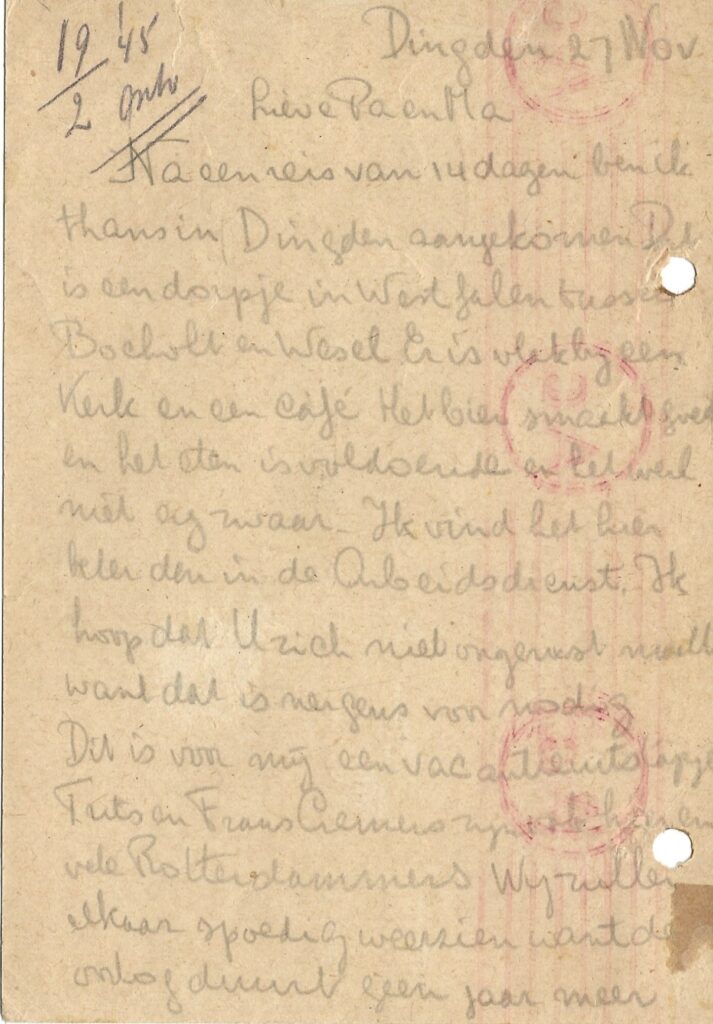 19/2 '45
Dingden 27 Nov
Lieve Pa en Ma
Na een reis van 14 dagen ben ik
thans in Dingden aangekomen Dit
is een dorpje in Westfalen tussen
Bocholt en Wesel Er is vlakbij een
Kerk en een café Het bier smaakt goed
en het eten is voldoende en het werk
niet erg zwaar. Ik vind het hier
beter dan in de Arbeidsdienst. Ik
hoop dat U zich niet ongerust maakt
want dat is nergens voor nodig
Dit is voor mij een vacantieuitstapje
Frans Cremers zijn ook hier en
vele Rotterdammers Wij zullen
elkaar spoedig weerzien want de
oorlog duurt geen jaar meer